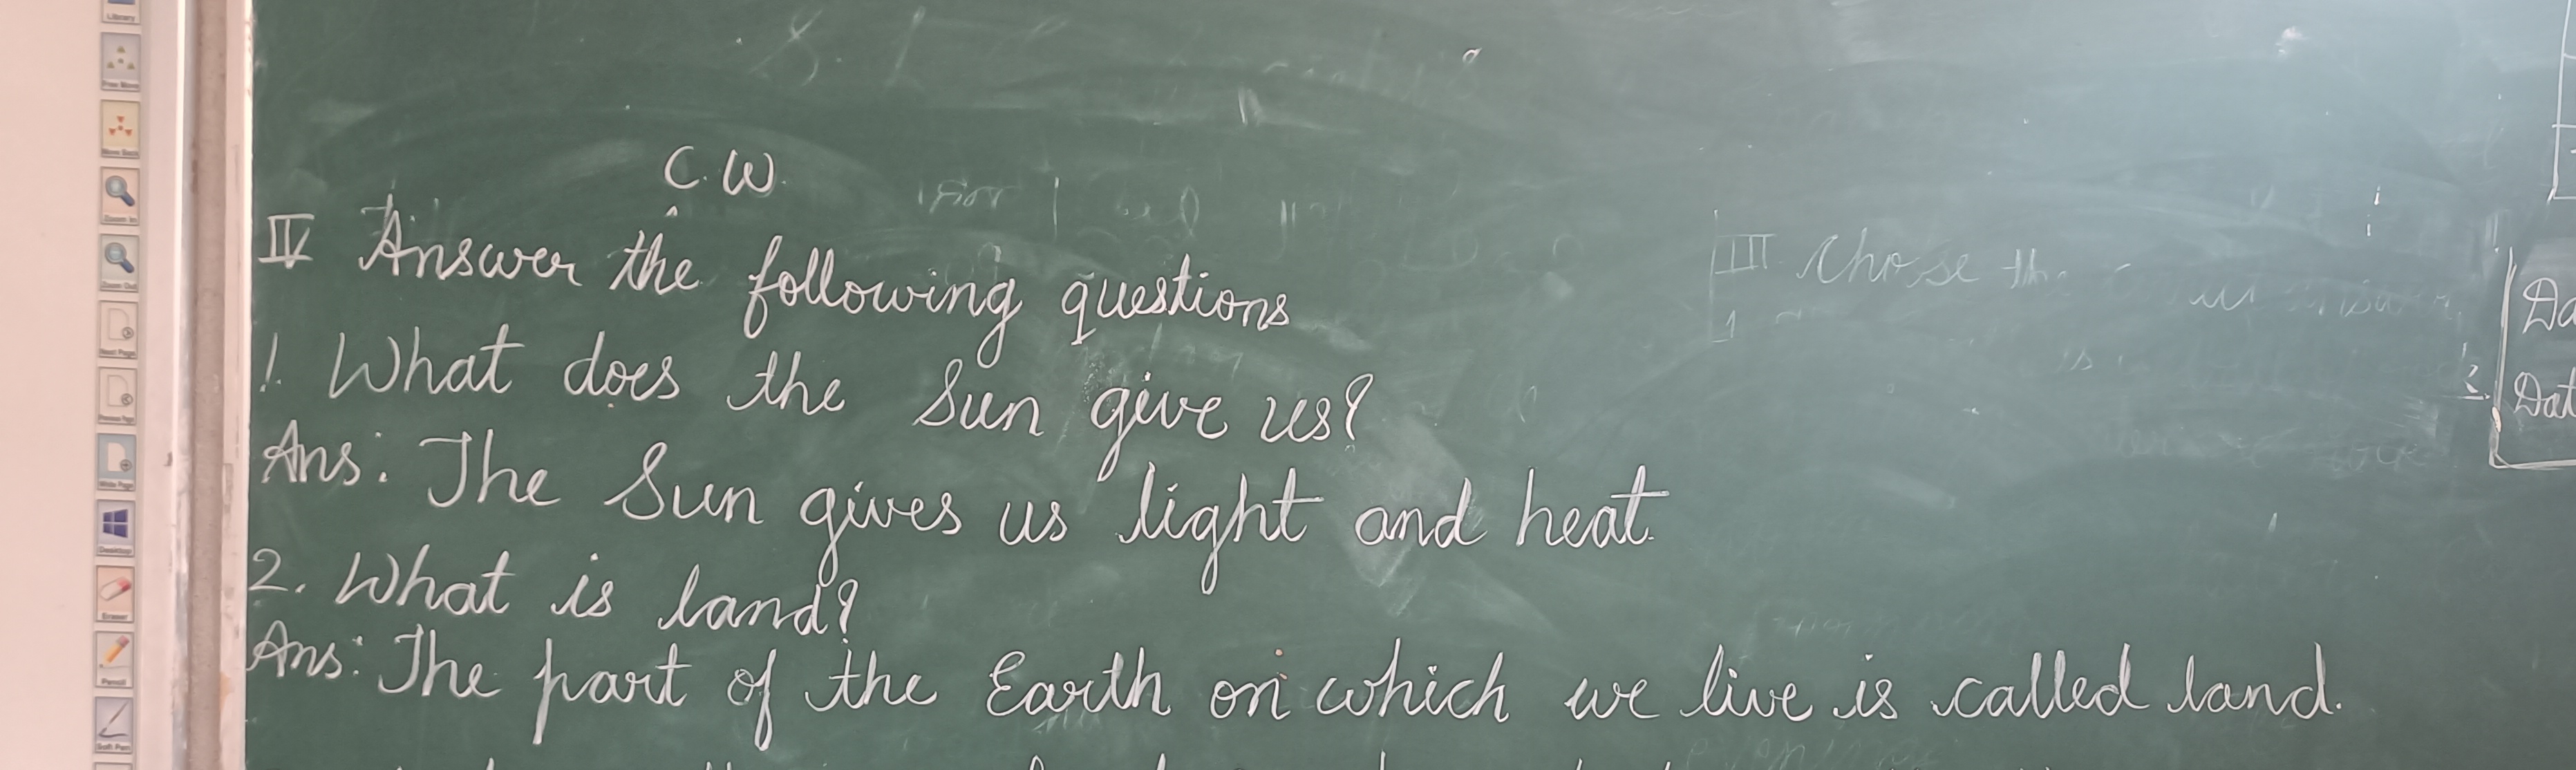 C.W.
IV Answer the following questions
1. What does the Sun give us?
Ans: The Sun gives us light and heat.
2. What is land?
Ans: The part of the Earth on which we live is called land.
III Chose the
1
2.
Library
Free Move
Move Back
Zoom In
Zoom Out
Next Page
Previous Page
White Page
Desktop
Eraser
Pencil
Soft Pen